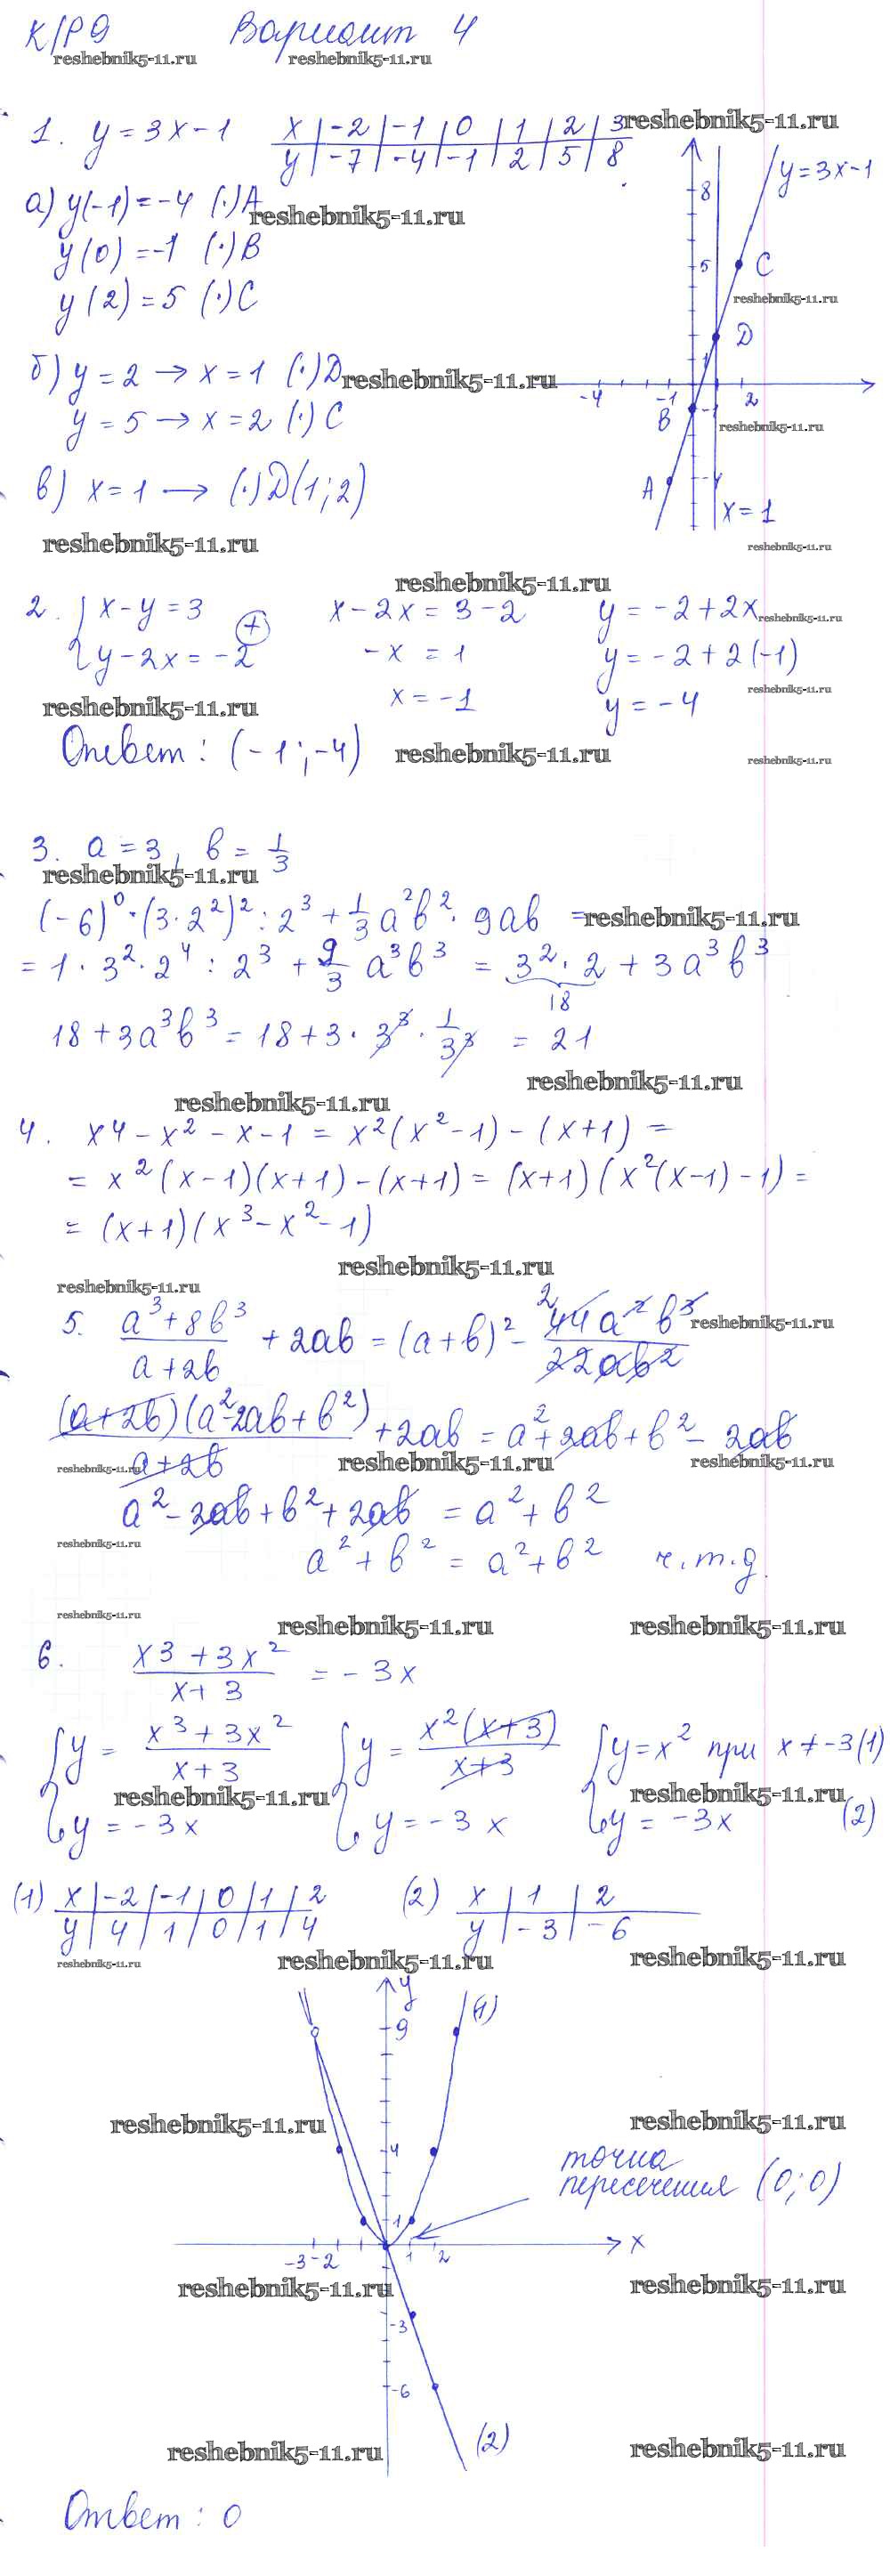 К/Р 9 Вариант 4
reshebnik5-11.ru reshebnik5-11.ru
1. y = 3x - 1 x | -2 | -1 | 0 | 1 | 2 | 3 reshebnik5-11.ru
y | -7 | -4 | -1 | 2 | 5 | 8
8 y = 3x - 1
а) y(-1) = -4 (·)A reshebnik5-11.ru
y(0) = -1 (·)B
5 C
y(2) = 5 (·)C reshebnik5-11.ru
1 D
б) y = 2 → x = 1 (·)D reshebnik5-11.ru
-4 -1 2
y = 5 → x = 2 (·)C B -1 reshebnik5-11.ru
в) x = 1 → (·)D(1; 2) A -4
x = 1
reshebnik5-11.ru reshebnik5-11.ru
reshebnik5-11.ru
2. { x - y = 3 (+) x - 2x = 3 - 2 y = -2 + 2x reshebnik5-11.ru
y - 2x = -2 -x = 1 y = -2 + 2(-1)
x = -1 y = -4 reshebnik5-11.ru
reshebnik5-11.ru
Ответ: (-1; -4) reshebnik5-11.ru reshebnik5-11.ru
3. a = 3, b = 1/3
reshebnik5-11.ru
(-6)⁰ · (3·2²)² : 2³ + 1/3 a²b² · 9ab = reshebnik5-11.ru
= 1 · 3² · 2⁴ : 2³ + 9/3 a³b³ = 3² · 2 + 3a³b³
18
18 + 3a³b³ = 18 + 3 · 3³ · 1/3³ = 21
reshebnik5-11.ru
reshebnik5-11.ru
4. x4 - x² - x - 1 = x²(x² - 1) - (x + 1) =
= x²(x - 1)(x + 1) - (x + 1) = (x + 1)(x²(x - 1) - 1) =
= (x + 1)(x³ - x² - 1)
reshebnik5-11.ru
reshebnik5-11.ru
5. (a³ + 8b³)/(a + 2b) + 2ab = (a + b)² - 2 44a²b³/22ab² reshebnik5-11.ru
(a + 2b)(a² - 2ab + b²)/(a + 2b) + 2ab = a² + 2ab + b² - 2ab
reshebnik5-11.ru reshebnik5-11.ru reshebnik5-11.ru
a² - 2ab + b² + 2ab = a² + b²
reshebnik5-11.ru
a² + b² = a² + b² ч.т.д.
reshebnik5-11.ru
reshebnik5-11.ru reshebnik5-11.ru
6. (x3 + 3x²)/(x + 3) = -3x
{ y = (x³ + 3x²)/(x + 3) { y = x²(x + 3)/(x + 3) { y = x² при x ≠ -3 (1)
reshebnik5-11.ru reshebnik5-11.ru
y = -3x y = -3x y = -3x (2)
(1) x | -2 | -1 | 0 | 1 | 2 (2) x | 1 | 2
y | 4 | 1 | 0 | 1 | 4 y | -3 | -6
reshebnik5-11.ru reshebnik5-11.ru reshebnik5-11.ru
y
(1)
9
reshebnik5-11.ru reshebnik5-11.ru
4 точка
пересечения (0; 0)
1
x
-3 -2 1 2
reshebnik5-11.ru reshebnik5-11.ru
-3
-6
(2)
reshebnik5-11.ru reshebnik5-11.ru
Ответ: 0